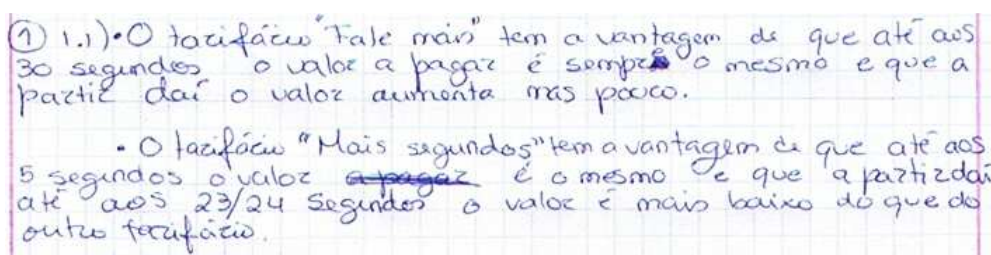 ① 1.1) • O tarifário "Fale mais" tem a vantagem de que até aos
30 segundos o valor a pagar é sempre o mesmo e que a
partir daí o valor aumenta mas pouco.
• O tarifário "Mais segundos" tem a vantagem de que até aos
5 segundos o valor a pagar é o mesmo e que a partir daí
até aos 23/24 segundos o valor é mais baixo do que do
outro tarifário.